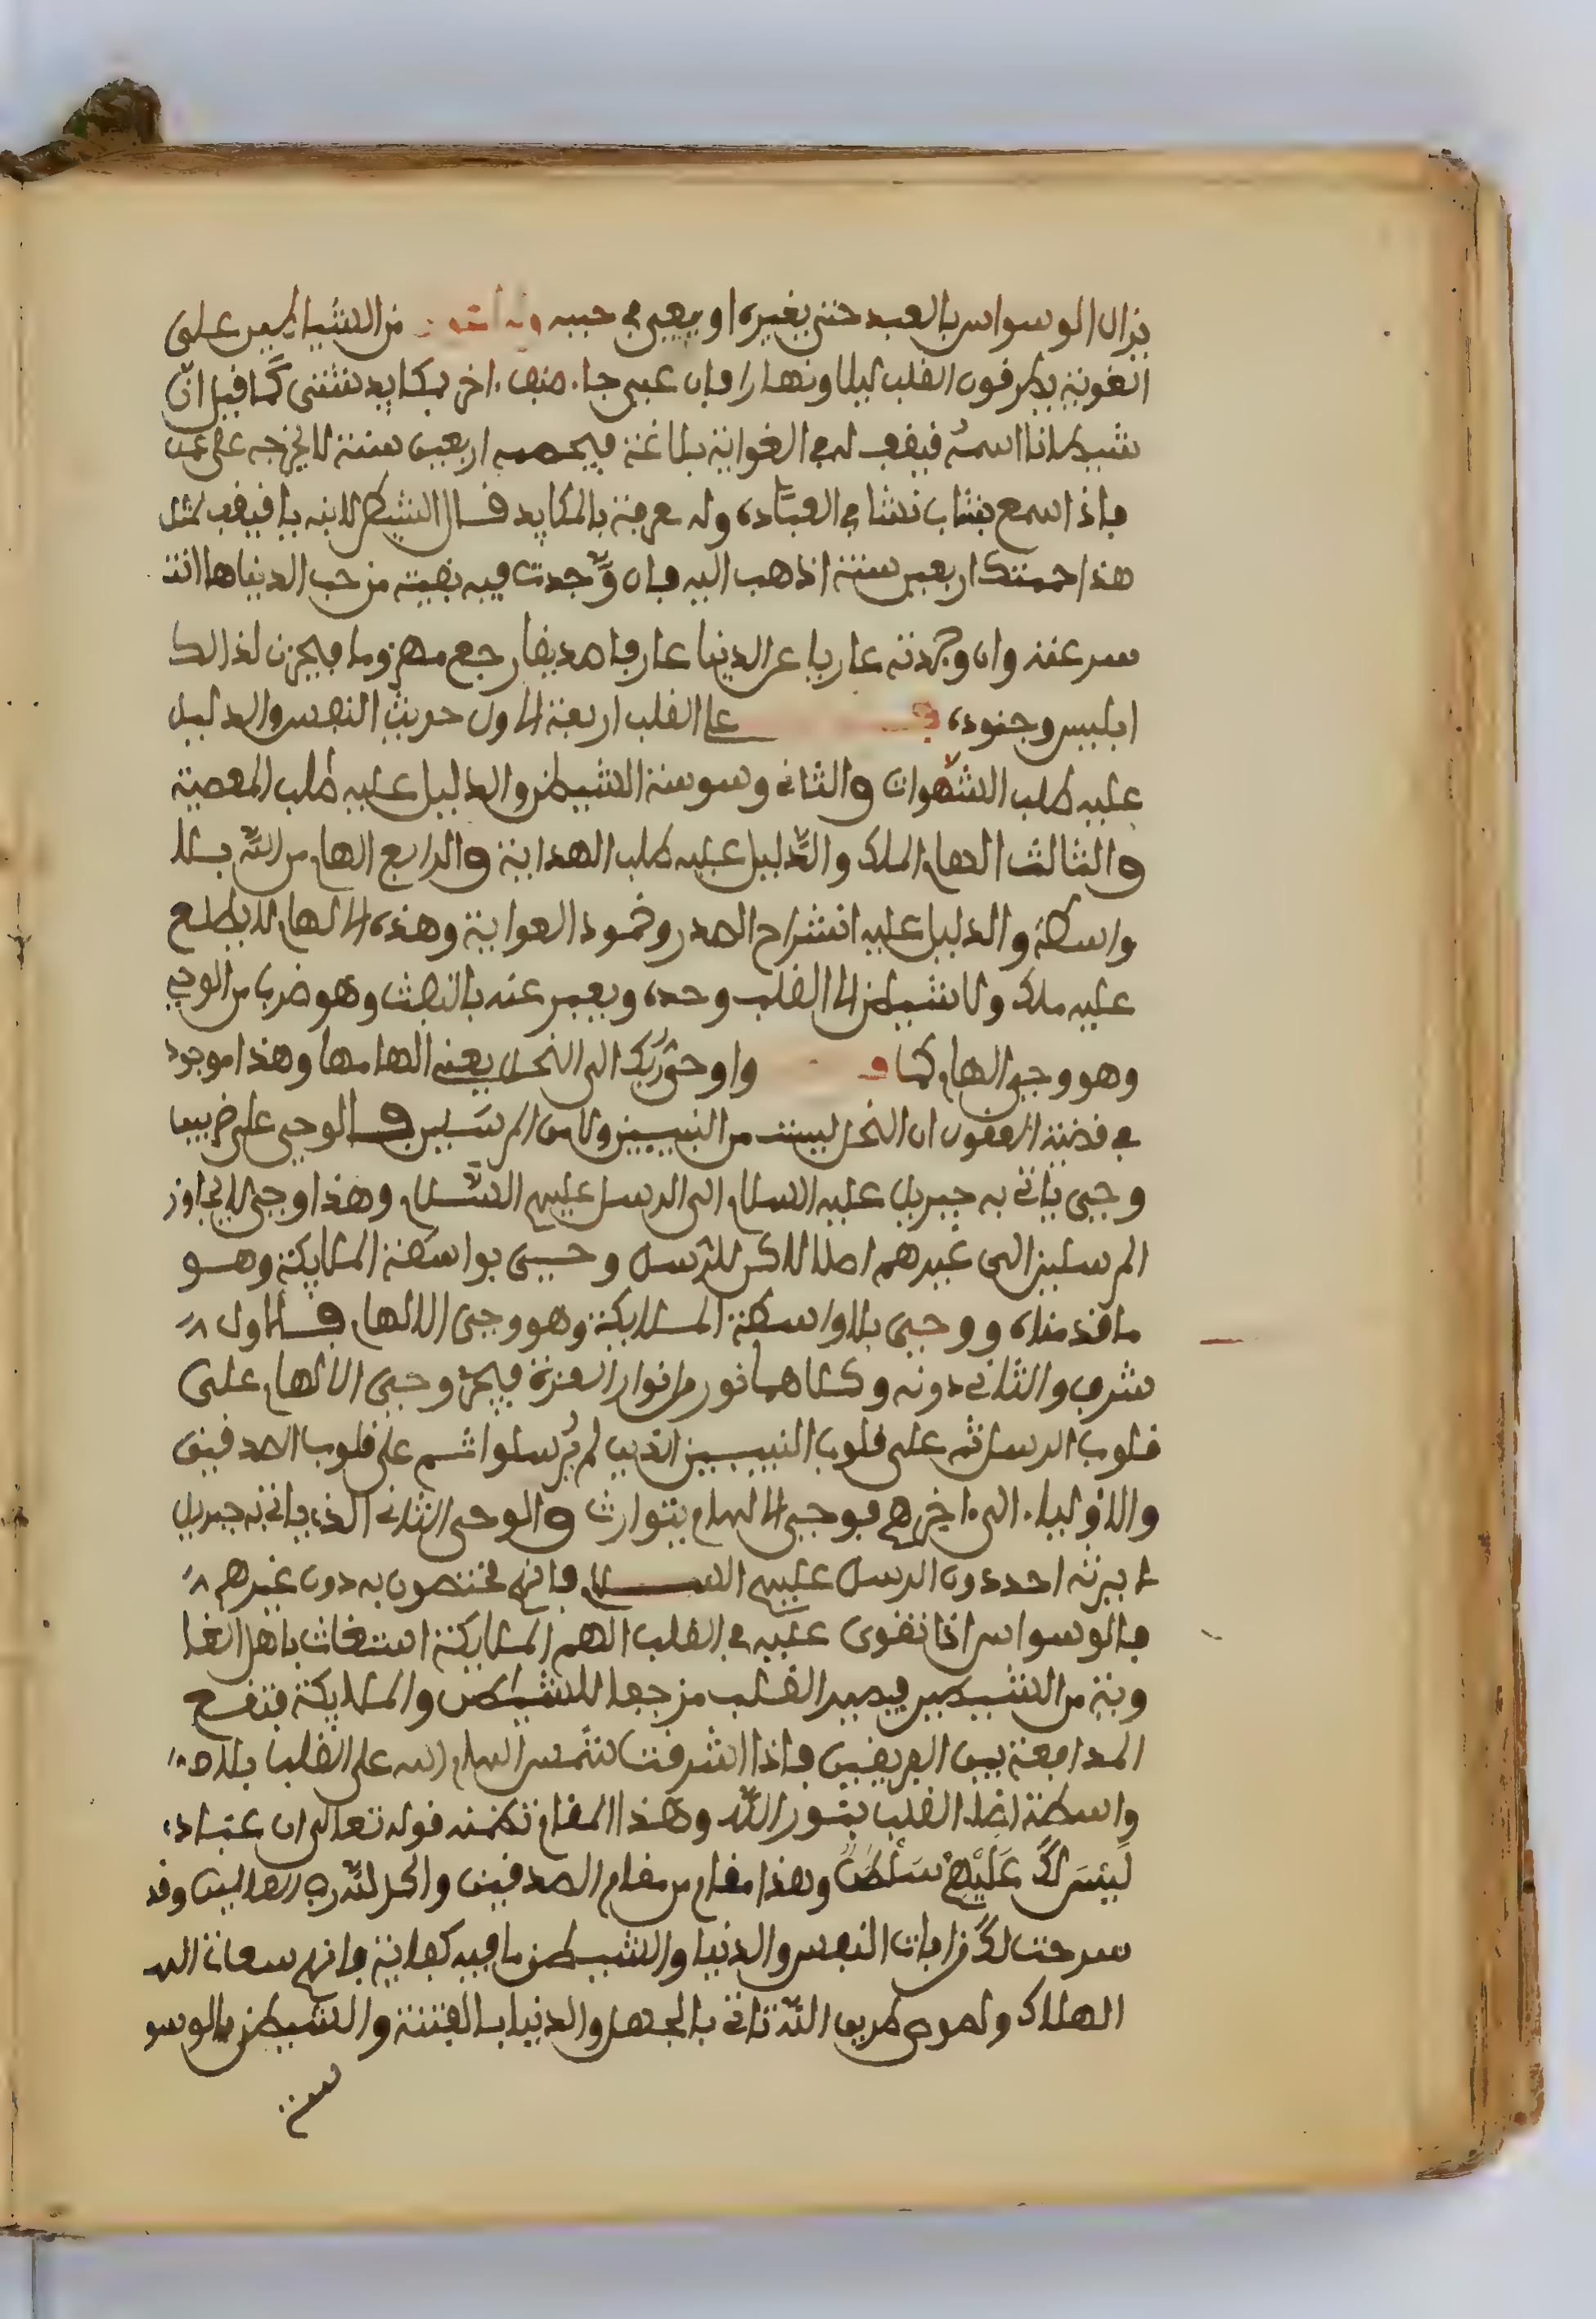 يزال الوسواس بالعبد حتى يغيره او يعيى في حبيه وله من الشياطين على
الغوية يطرفون القلب ليلا ونهارا فان عيى جاء صنف ءاخر بمكايد شتى كما قيل ان
شيطانا اسمه قيقب له في الغواية بلاغة فيحصه اربعين سنة لا يخرجه على
فاذا سمع بشاب نشا في العباده وله معرفة بالمكايد قال الشيطن لابنه يا قيقب لمثل
هذا اربعين سنة اذهب اليه فان وجدت فيه بقية من حب الدنيا ها انت
سر عنه وان وجدته عاريا عن الدنيا عارفا صديقا رجع مهزوما فيحزن لذالك
ابليس وجنوده على القلب اربعة الاول حديث النفس والدليل
عليه طلب الشهوات والثاني وسوسة الشيطن والدليل عليه طلب المعصية
والثالث الهام الملك والدليل عليه طلب الهداية والرابع الهام من الله بلا
واسطة والدليل عليه انشراح الصدر وخمود الغواية وهذه الالهام لا يطلع
عليه ملك ولا شيطن الا القلب وحده ويعبر عنه بالنفث وهو ضرب من الوحي
وهو وحي الهام كما واوحى ربك الى النحل يعني الهامها وهذا موجود
في قضية العقول ان النحل ليست من النبيين ولا من المرسلين فالوحي على ضربين
وحي ياتي به جبريل عليه السلام الى الرسل عليهم السلام وهذا وحي لا يجاوز
المرسلين الى غيرهم اصلا لاكن للرسل وحي بواسطة الملايكة وهو
ما قدمناه ووحي بلا واسطة الملايكة وهو وحي الالهام فالاول
شرف والثاني دونه وكلاهما نور من انوار العزة فيجري وحي الالهام على
قلوب الرسل ثم على قلوب النبيين الذين لم يرسلوا ثم على قلوب الصدقين
والاولياء الى ءاخرهم فوحي الالهام يتوارث والوحي الثاني الذي ياتي به جبريل
لا يرثه احد دون الرسل عليهم السلام فانهم مختصون به دون غيرهم
فالوسواس اذا تقوى عليه في القلب الهم الملايكة استغاث باهل الغا
وية من الشيطين فيصير القلب مزجعا للشيطن والملايكة فتقع
المدافعة بين الفريقين فاذا اشرقت شمس الهام الله على القلب بلا
واسطة اضاء القلب بنور الله وهذا المقام تضمنه قوله تعالى ان عبادي
ليس لك عليهم سلطن وهذا مقام من مقام الصدقين والحمد لله رب العالمين وقد
سرحت لك من افات النفس والدنيا والشيطن ما فيه كفاية فانهم سعاة الى
الهلاك ولصوص طريق الله تاتي بالجهل والدنيا بالفتنة والشيطن بالوسو
س